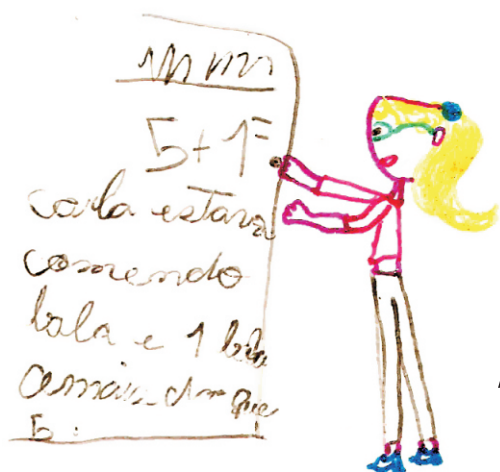 5+1=
carla estava
comendo
bala e 1 bala
amais do que
5.